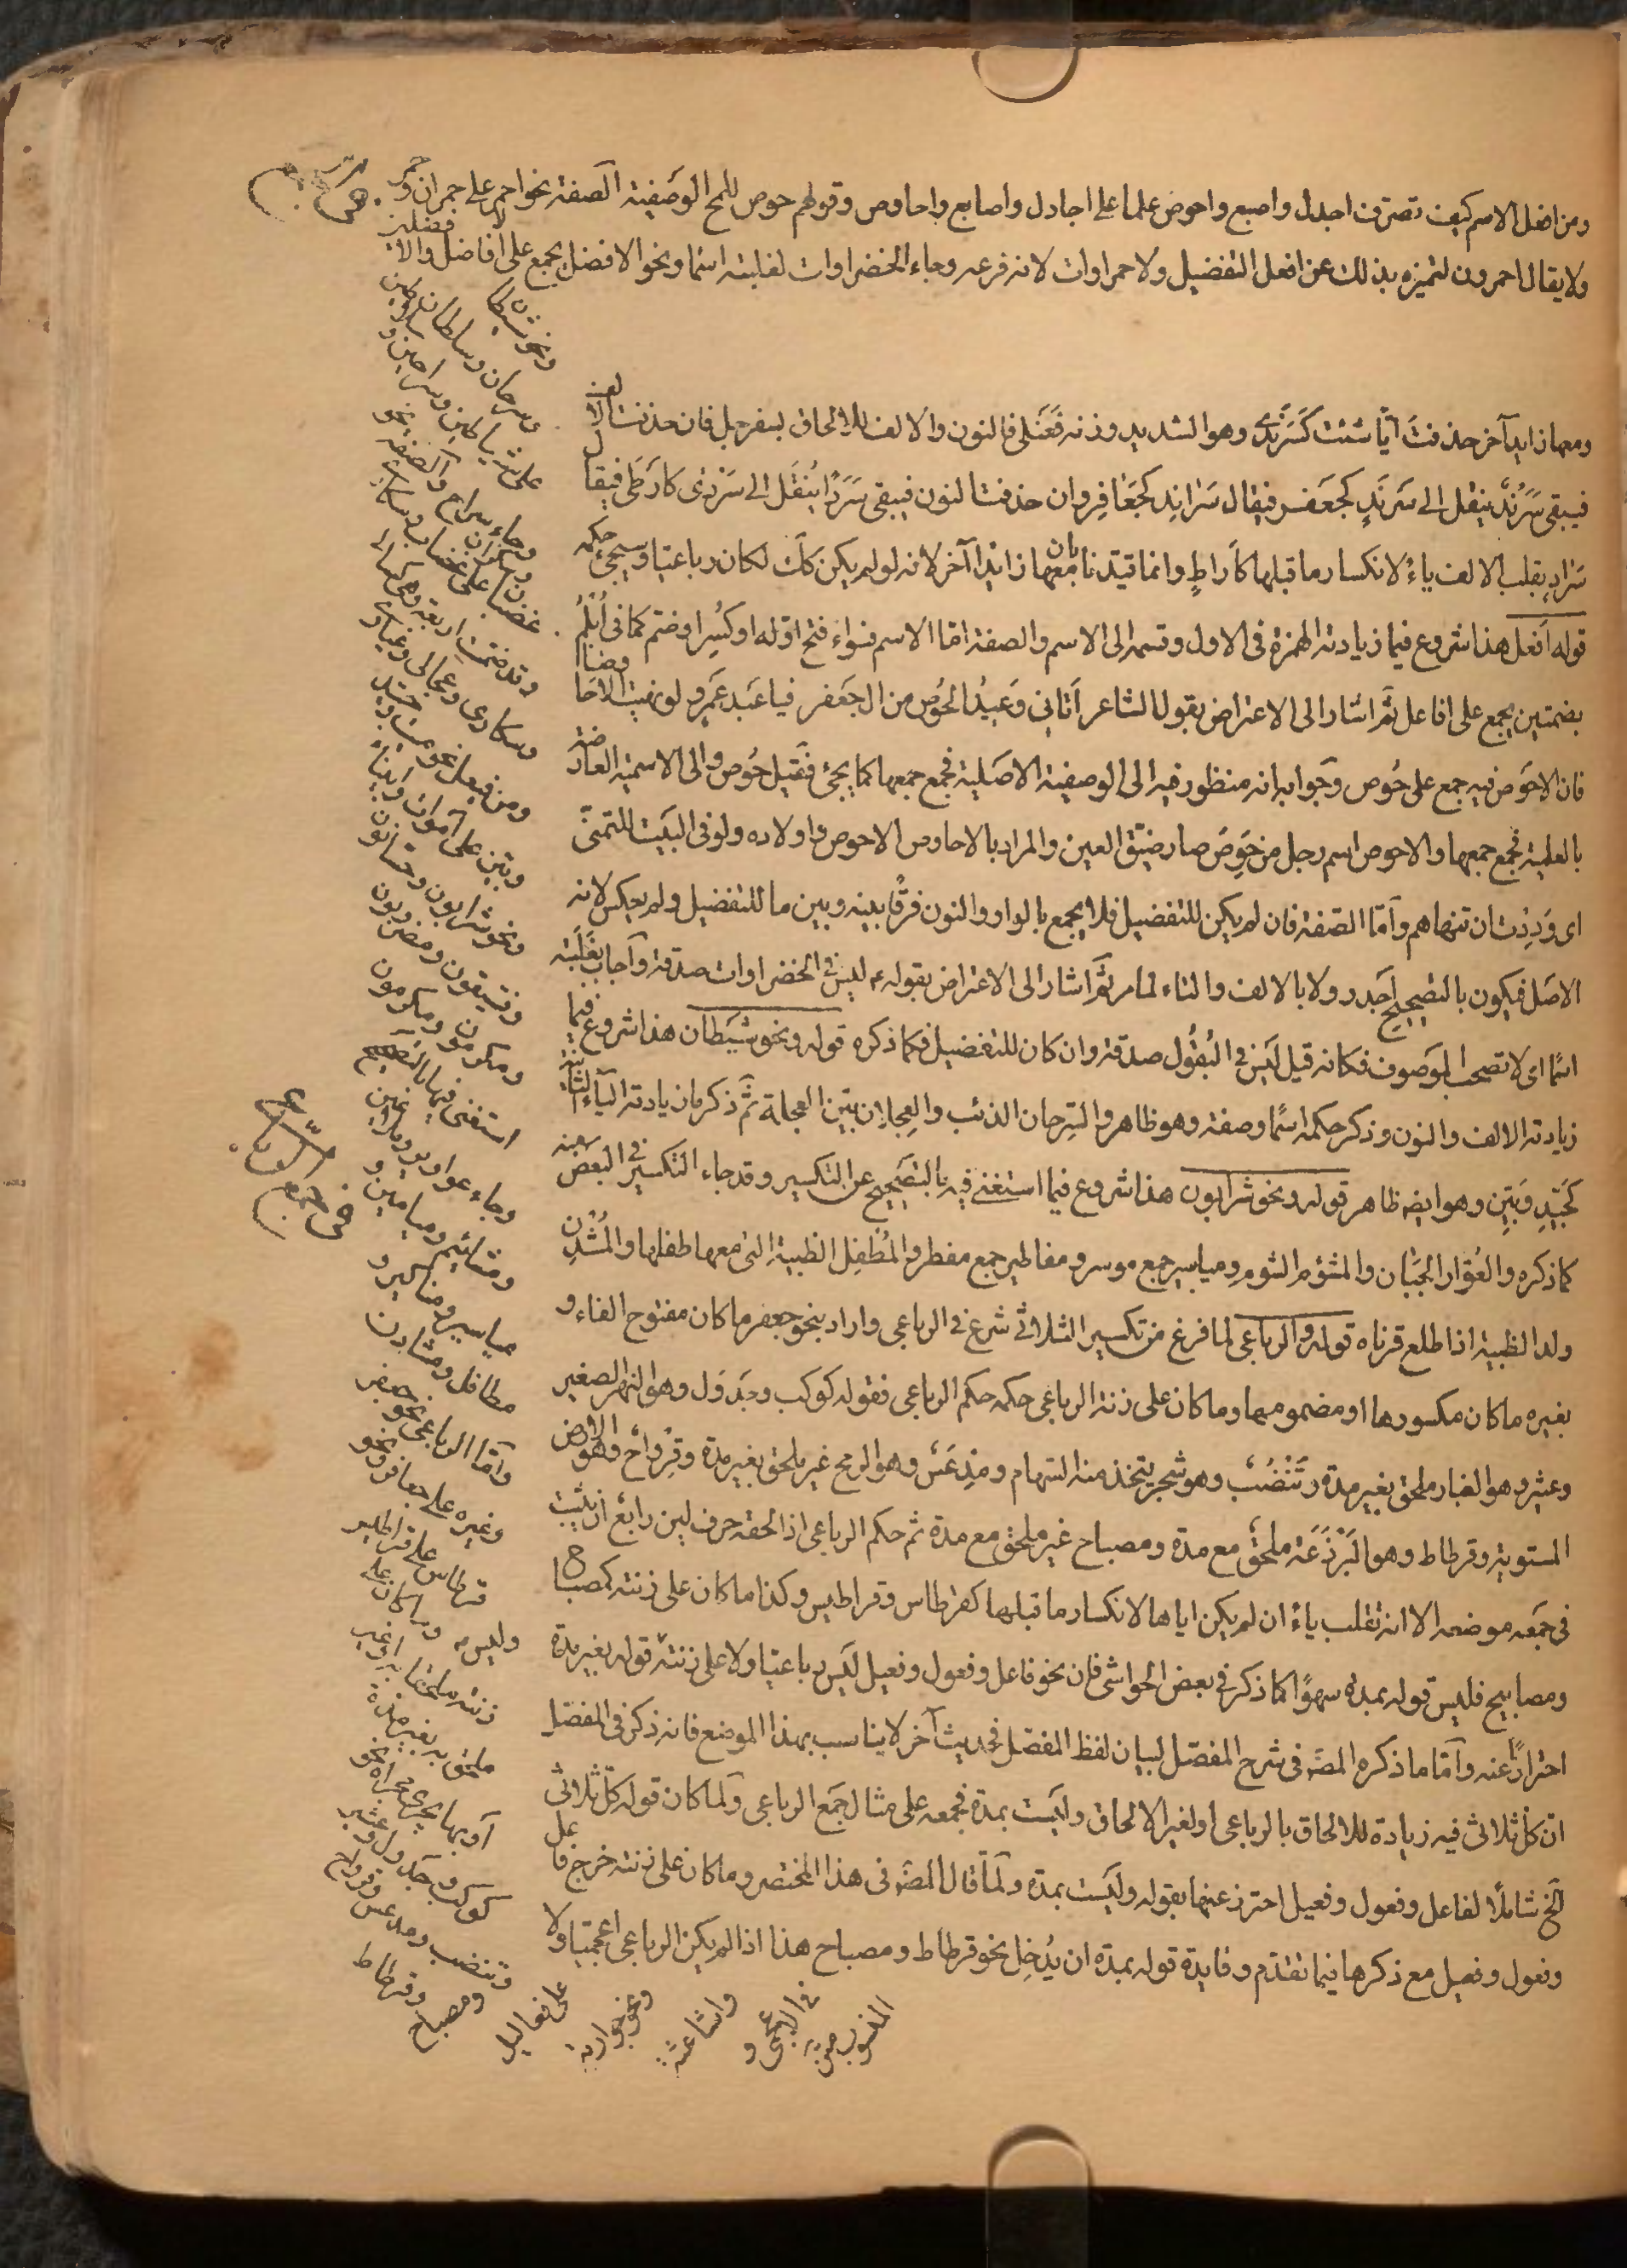 ومن افعل الاسم كيف تصرّف اجدل واصبع واحوص علما على اجادل واصابع واحاوص وقولهم حوص للمح الوصفية الصفة نحو احمر على حمران وحمر
ولا يقال احمرون لتميزه بذلك عن افعل التفضيل ولا حمراوات لانه فرعه وجاء الخضراوات لغلبته اسما ونحو الافضل يجمع على الافاضل والافضلين
ومعها زايد آخر حذفت ايّا شئت كسرندى وهو الشديد وزنه فعنلى فالنون والالف للالحاق بسفرجل فان حذفت الالف
فيبقى سرند ينقل الى سرند كجعفر فيقال سراند كجعافر وان حذفت النون فيبقى سردا ينقل الى سردى كارطى فيقال
سراد بقلب الالف ياء لانكسار ما قبلها كاراط وانما قيدنا بان معها زايدا آخر لانه لو لم يكن كك لكان رباعيا وسيجئ حكمه
قوله افعل هذا شروع فيما زيادته الهمزة فى الاول وقسمه الى الاسم والصفة اما الاسم فسواء فتح اوله او كسر او ضم كما فى ابلم
بضمتين يجمع على افاعل ثم اشار الى الاعتراض بقول الشاعر اتانى وعيد الحوص من ال جعفر فيا عبد عمرو لو نهيت الاحاوصا
فان الاحوص فيه جمع على حوص وجوابه انه منظور فيه الى الوصفية الاصلية فجمع جمعها كما يجئ فقيل حوص والى الاسمية العارضة
بالعلمية فجمع جمعها والاحوص اسم رجل من حوص صار ضيق العين والمراد بالاحاوص الاحوص واولاده ولو فى البيت للتمنى
اى وددت ان تنهاهم واما الصفة فان لم يكن للتفضيل فلا يجمع بالواو والنون فرقا بينه وبين ما للتفضيل ولم يعكس لانه
الاصل فيكون بالتصحيح اجدر ولا بالالف والتاء لما مر ثم اشار الى الاعتراض بقوله ء ليس فى الخضراوات صدقة واجاب بغلبته
اسما اى لا تصحب الموصوف فكانه قيل ليس فى البقول صدقة وان كان للتفضيل فكما ذكره قوله ونحو شيطان هذا شروع فيما
زيادته الالف والنون وذكر حكمه اسما وصفة وهو ظاهر والسرحان الذئب والعجلان بيّن العجلة ثم ذكر ما زيادته الياء الثانية
كجيّد وبيّن وهو ايضه ظاهر قوله ونحو شرابون هذا شروع فيما استغنى فيه بالتصحيح عن التكسير وقد جاء التكسير فى البعض
كما ذكره والعوّار الجبان والمشؤم الشوم ومياسير جمع موسر ومفاطير جمع مفطر والمطفل الظبية التى معها طفلها والمشدن
ولد الظبية اذا طلع قرناه قوله والرباعى لما فرغ من تكسير الثلاثى شرع فى الرباعى واراد بنحو جعفر ما كان مفتوح الفاء و
بغيره ما كان مكسورها او مضمومها وما كان على زنة الرباعى حكمه حكم الرباعى فقوله كوكب وجدول وهو النهر الصغير
وعثير وهو الغبار ملحق بغير مدة وتنضب وهو شجر يتخذ منه السهام ومدعس وهو الرمح غير ملحق بغير مدة وقرواح وهو الارض
المستوية وقرطاط وهو البرذعة ملحق مع مدة ومصباح غير ملحق مع مدة ثم حكم الرباعى اذا لحقه حرف لين رابع ان يثبت
فى جمعه موضعه الا انه تقلب ياء ان لم يكن اياها لانكسار ما قبلها كقرطاس وقراطيس وكذا ما كان على زنته كمصباح
ومصابيح فليس قوله بمدة سهوا كما ذكر فى بعض الحواشى فان نحو فاعل وفعول وفعيل ليس رباعيا ولا على زنته قوله بغير مدة
احترازا عنه واما ما ذكره المصـ فى شرح المفصل لبيان لفظ المفصل فحديث آخر لا يناسب بهذا الموضع فانه ذكر فى المفصل
ان كل ثلاثى فيه زيادة للالحاق بالرباعى او لغير الالحاق وليست بمدة فجمعه على مثال جمع الرباعى ولما كان قوله كل ثلاثى
الخ شاملا لفاعل وفعول وفعيل احترز عنها بقوله وليست بمدة ولما قال المصـ فى هذا المختصر وما كان على زنته خرج فاعل
وفعول وفعيل مع ذكرها فيما تقدم وفايدة قوله بمدة ان يدخل نحو قرطاط ومصباح هذا اذا لم يكن الرباعى اعجميا ولا
ونحو شيطان
وسرحان وسلطان
على شياطين وسراحين و
وجاء سراح والصفة نحو
غضبان على غضاب وسكارى
وقد ضمت اربعة
وسكارى وعجالى وغيارى
ومن فيعل نحو ميت وجيد
وبيّن على اموات وابيناء
ونحو شرابون وحسانون
وفسيقون ومضروبون
ومكرمون ومكرمون
استغنى فيها بالتصحيح
وجاء عواوير وملاعين
ومشائيم وميامين و
مياسير ومفاطير و
مطافل ومشادن
واما الرباعى نحو جعفر
وغيره على جعافر ونحو
قرطاس على قراطيس
وما كان على
زنته ملحقا او غير
ملحق به بغير مدة
او بها يجرى مجراه نحو
كوكب وجدول وعثير
وتنضب ومدعس وقرواح
وقرطاط
ومصباح
على فعاليل
ونحو جواربة
واشاعثة
فى الاعجمى و
المنسوب
فى جمع